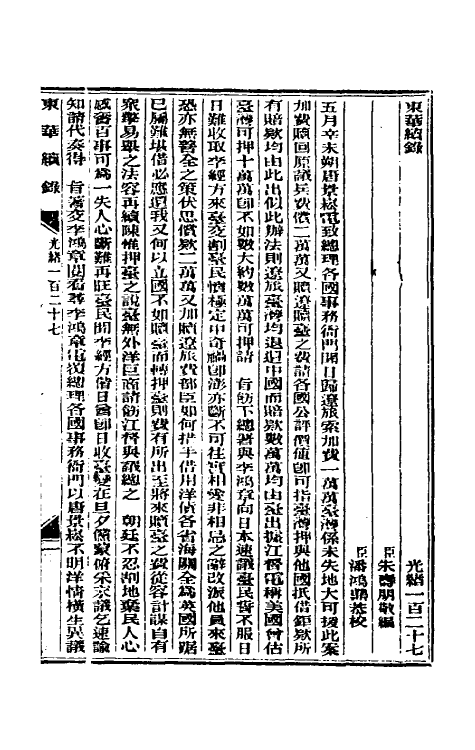 東華續錄
光緒一百二十七
臣朱壽朋敬編
臣潘鴻鼎恭校
五月辛未朔唐景崧電致總理各國事務衙門聞日歸遼旅索加費一萬萬臺灣係未失地大可援此案
加費贖回原議兵費償二萬萬又贖遼贖臺之費請各國公評價值卽可指臺灣押與他國抵借鉅款所
有賠款均由此出似此辦法則遼旅臺灣均退還中國而賠款數萬萬均由臺出據江督電稱美國曾估
臺灣可押十萬萬卽不如數大約數萬萬可押請　旨飭下總署與李鴻章向日本速議臺民誓不服日
日難收取李經方來臺交割臺民憤極定中奇禍卽澎亦斷不可往實相愛非相忌之辭改派他員來臺
恐亦無善全之策伏思償款二萬萬又加贖遼旅費部臣如何措手借用洋債各省海關全爲英國所踞
已屬難堪借必應還我又何以立國不如贖臺而轉押臺則費有所出至將來贖臺之費從容計謀自有
衆擎易舉之法容再續陳惟押臺之說臺無外洋巨商請飭江督與議總之　朝廷不忍割地棄民人心
感奮百事可爲一失人心斷難再旺臺民聞李經方偕日酋卽日收臺變在旦夕儻蒙俯采末議乞速諭
知請代奏得　旨著交李鴻章閱看尋李鴻章電復總理各國事務衙門以唐景崧不明洋情橫生異議
東華續錄　光緒一百二十七